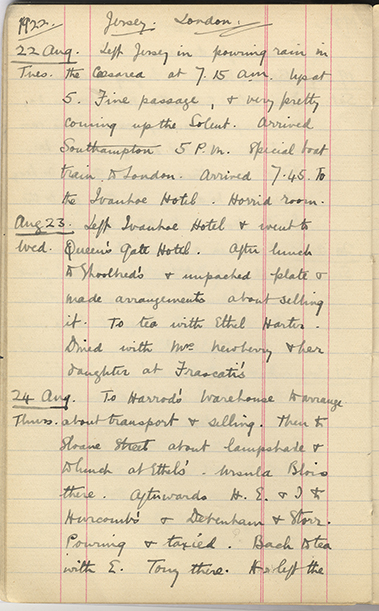 1922. Jersey. London.
22 Aug. Left Jersey in pouring rain in
Tues. the Caesarea at 7.15 a.m. Up at
5. Fine passage, & very pretty
coming up the Solent. Arrived
Southampton 5 P.M. Special boat
train to London. Arrived 7.45. To
the Ivanhoe Hotel. Horrid room.
Aug 23. Left Ivanhoe Hotel & went to
Wed. Queen's Gate Hotel. After lunch
to Shoolbred's & unpacked plate &
made arrangements about selling
it. To tea with Ethel Harter.
Dined with Mrs Newberry & her
daughter at Frascati's
24 Aug. To Harrod's Warehouse to arrange
Thurs. about transport & selling. Then to
Sloane Street about lampshade &
to lunch at Ethel's. Ursula Blois
there. Afterwards H. E. & I to
Hurcomb's & Debenham & Storr.
Pouring & taxied. Back to tea
with E. Tony there. left the